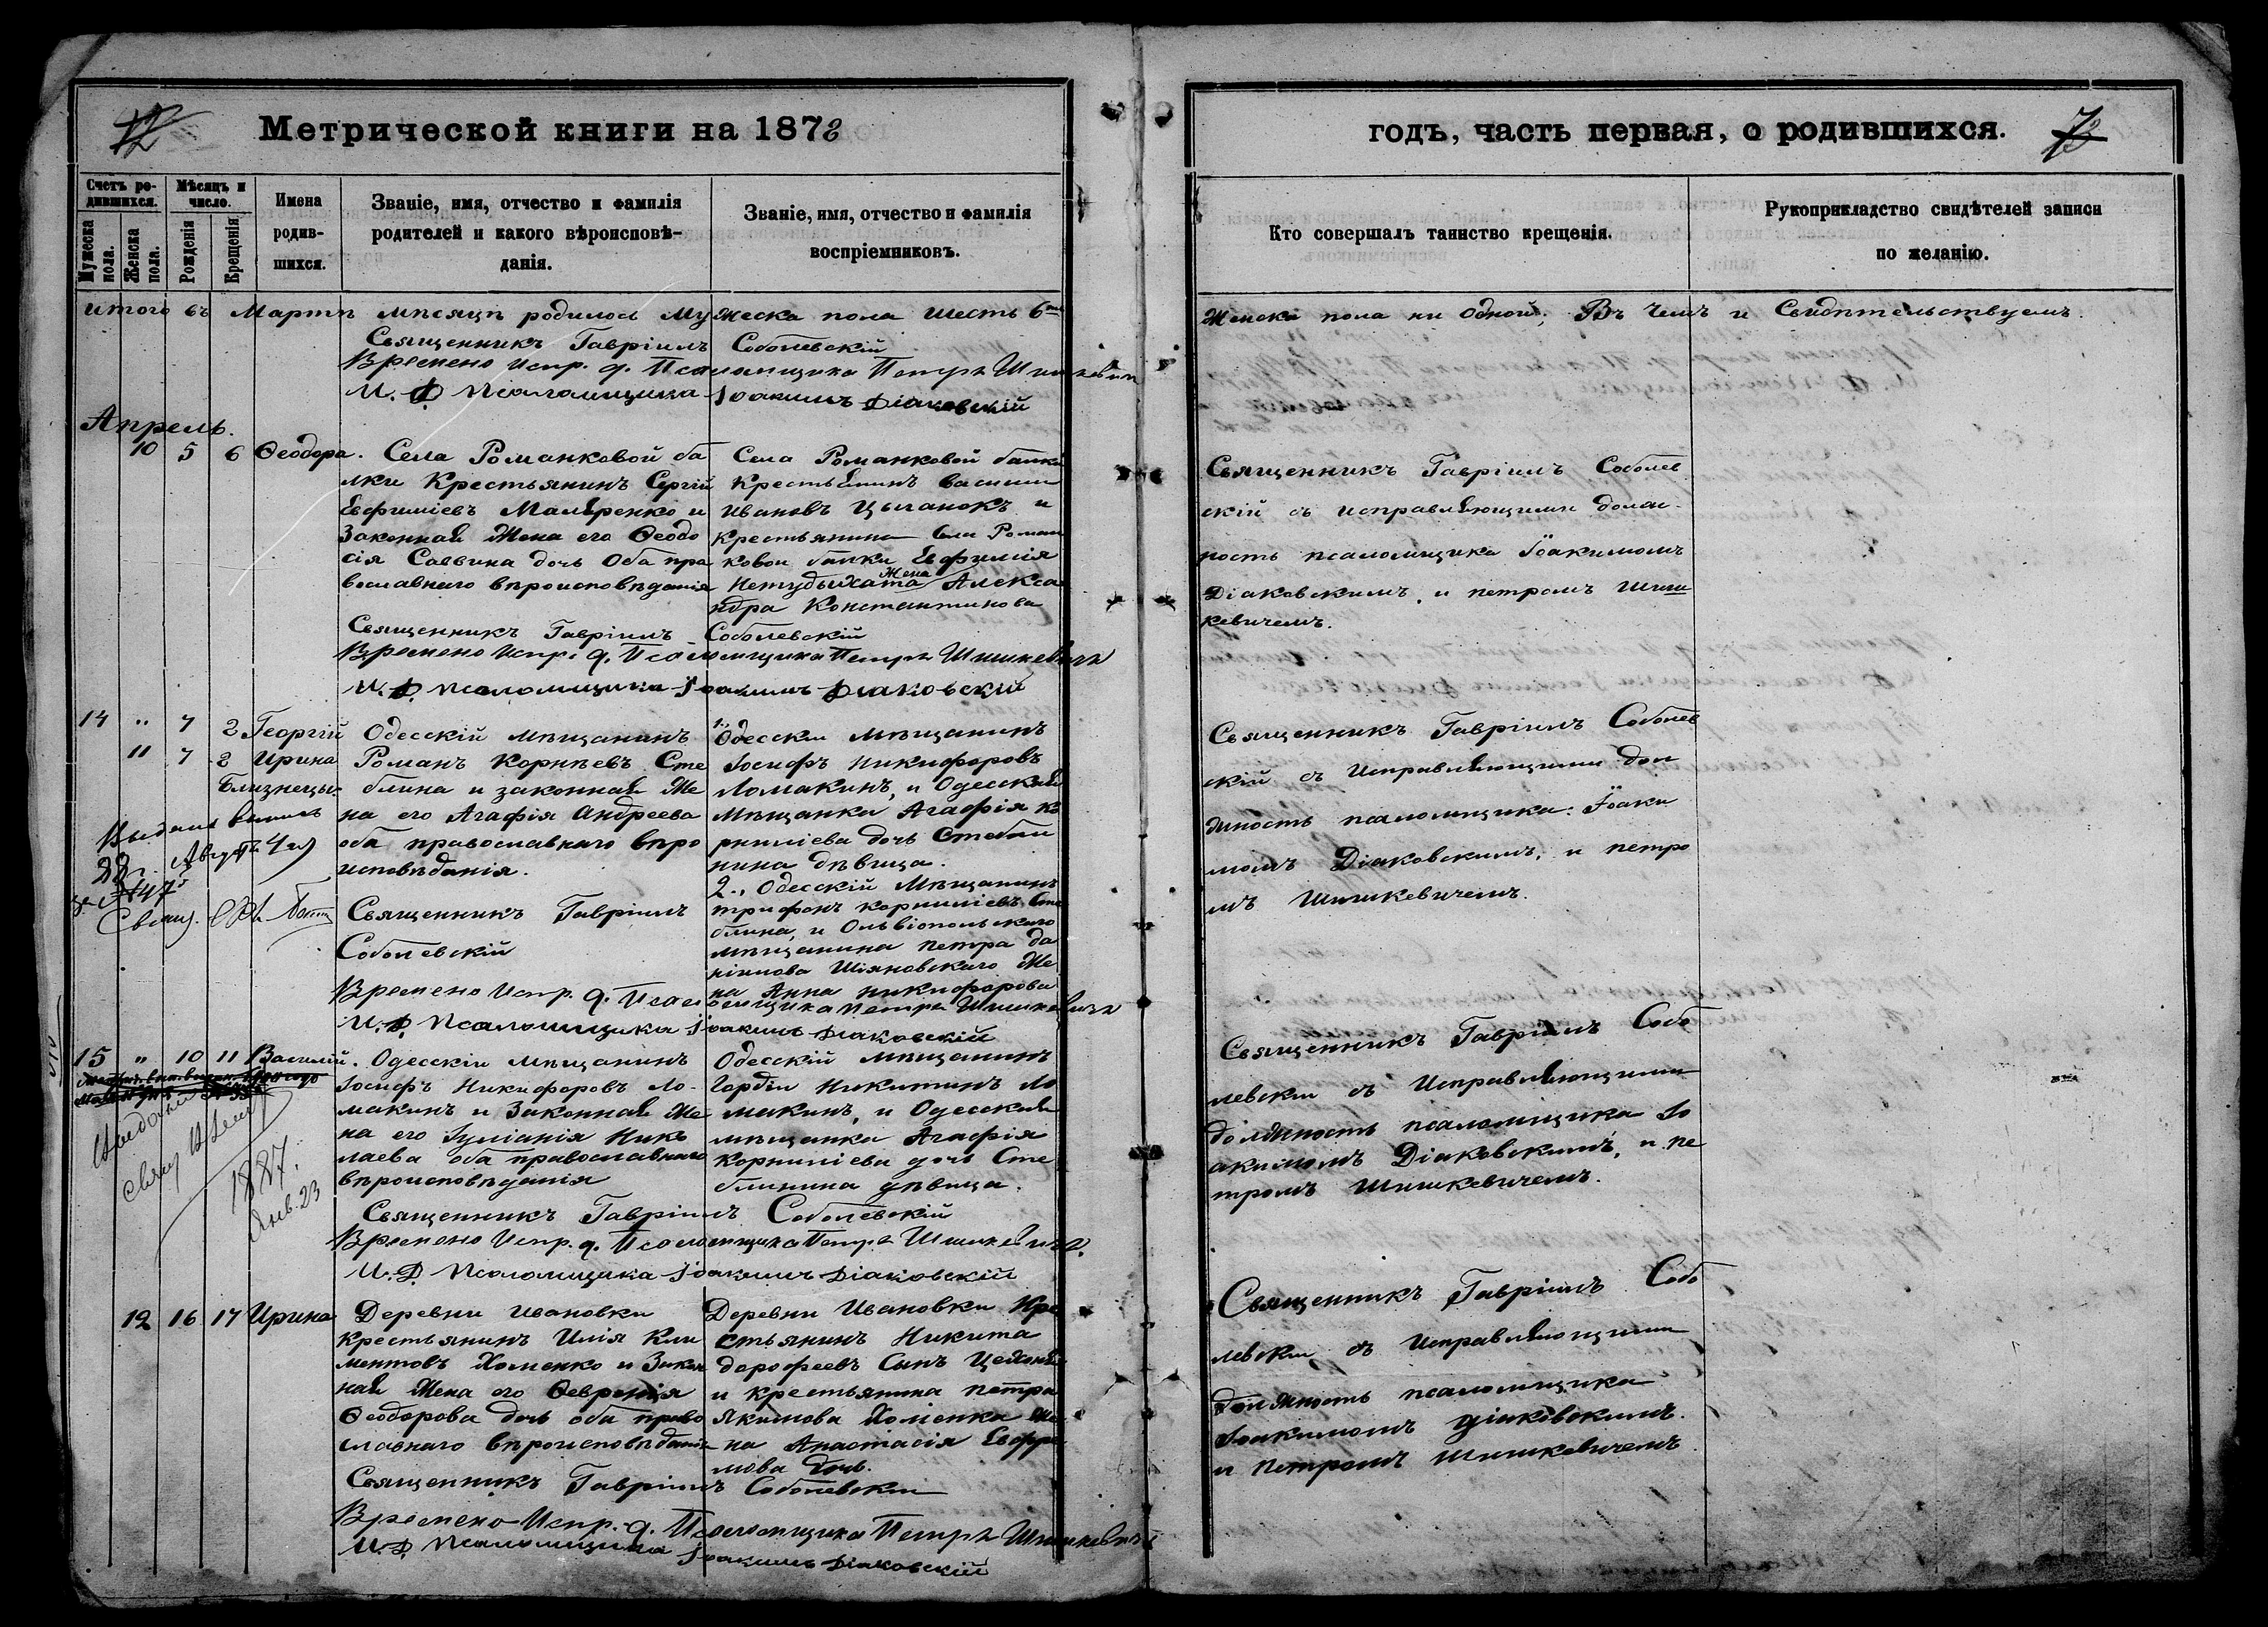 12
Метрической книги на 1872
Счетъ родившихся.
Мѣсяцъ и число.
Имена родившихся.
Званіе, имя, отчество и фамилія родителей и какого вѣроисповѣданія.
Званіе, имя, отчество и фамилія воспріемниковъ.
Мужеска пола.
Женска пола.
Рожденія
Крещенія
Итого въ Мартѣ мѣсяцѣ родилось мужеска пола шесть 6
Священникъ Гавріилъ Соболевскій
Времено Испр. д. Псаломщика Петръ Шишкевичъ
И. Д. Псаломщика Іоакимъ Діаковскій
Апрель.
10 5 6 Ѳеодора.
Села Романковой ба
лки Крестьянинъ Сергій
Евфиміевъ Маляренко и
Законная Жена его Ѳеодо
сія Саввина дочь Оба пра
вославнаго вѣроисповѣданія
Села Романковой балки
Крестьянинъ Василій
Ивановъ Цыганокъ и
Крестьянина Села Роман
ковой балки Евфимія
Нетудыхата Жена Алекса
ндра Константинова
Священникъ Гавріилъ Соболевскій
Времено Испр. д. Псаломщика Петръ Шишкевичъ
И. Д. Псаломщика Іоакимъ Діаковскій
14 " 7 2 Георгій
11 7 2 Ирина
Близнецы.
Одесскій мѣщанинъ
Романъ Корнѣевъ Сте
блина и законная Же
на его Агафія Андреева
оба православнаго вѣро
исповѣданія.
1., Одесскій мѣщанинъ
Іосифъ Никифоровъ
Ломакинъ, и Одесская
Мѣщанка Агафія Ко
рниліева дочь Стебли
нина дѣвица.
2., Одесскій Мѣщанинъ
Трифонъ Корниліевъ Сте
блина, и Ольвіопольскаго
мѣщанина Петра Да
ніилова Шіяновскаго Же
на Анна Никифорова
Августъ
Священникъ Гавріилъ
Соболевскій
Времено Испр. д. Псаломщика Петръ Шишкевичъ
И. Д. Псаломщика Іоакимъ Діаковскій
15 " 10 11 Василій.
Одесскій мѣщанинъ
Іосифъ Никифоровъ Ло-
макинъ и Законная Же
на его Іуліанія Нико
лаева оба православнаго
вѣроисповѣданія
Одесскій мѣщанинъ
Гордій Никитинъ Ло
макинъ, и Одесская
мѣщанка Агафія
Корниліева дочь Сте
блинина дѣвица.
1887.
Янв. 23
Священникъ Гавріилъ Соболевскій
Времено Испр. д. Псаломщика Петръ Шишкевичъ.
И. Д. Псаломщика Іоакимъ Діаковскій
12 16 17 Ирина
Деревни Ивановки
Крестьянинъ Илія Кли
ментовъ Хоменко и Закон
ная Жена его Февронія
Ѳеодорова дочь оба право
славнаго вѣроисповѣданія
Деревни Ивановки Кре
стьянинъ Никита
Дорофеевъ Сынъ
и крестьянина Петра
Якимова Хоменка Же
на Анастасія Ефре
мова Дочь.
Священникъ Гавріилъ Соболевскій
Времено Испр. д. Псаломщика Петръ Шишкевичъ
И. Д. Псаломщика Іоакимъ Діаковскій
годъ, часть первая, о родившихся.
Кто совершалъ таинство крещенія.
Рукоприкладство свидѣтелей записи по желанію.
Женска пола ни одной; Въ чемъ и Свидѣтельствуемъ.
Священникъ Гавріилъ Соболев
скій съ исправляющими долж-
ность псаломщика Іоакимомъ
Діаковскимъ, и Петромъ Шиш
кевичемъ.
Священникъ Гавріилъ Соболев
скій съ Исправляющими дол
жность псаломщика: Іоаки
момъ Діаковскимъ, и петро
мъ Шишкевичемъ.
Священникъ Гавріилъ Собо
левскій съ Исправляющими
должность псаломщика Іо
акимомъ Діаковскимъ, и Пе
тромъ Шишкевичемъ.
Священникъ Гавріилъ Собо
левскій съ Исправляющими
должность псаломщика
Іоакимомъ Діаковскимъ.
и Петромъ Шишкевичемъ